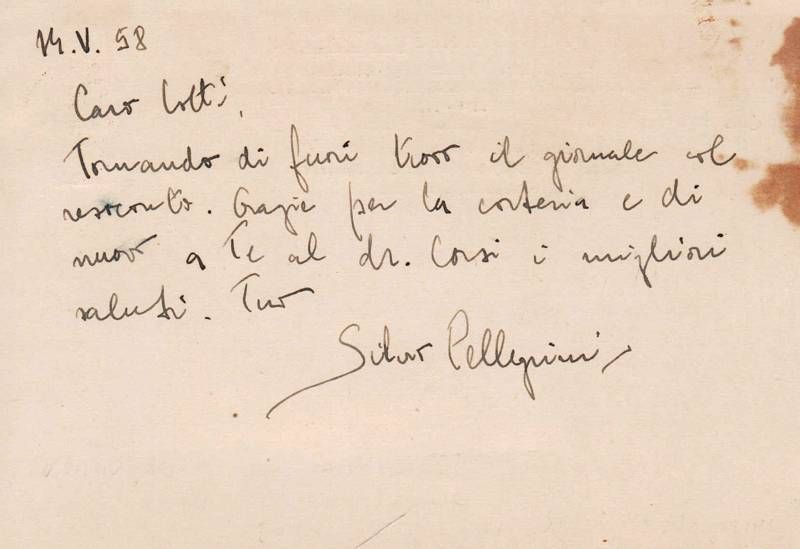 14.V.58
Caro Colti,
Tornando di fuori trovo il giornale col
resoconto. Grazie per la cortesia e di
nuovo a Te al dr. Corsi i migliori
saluti. Tuo
Silvio Pellegrini